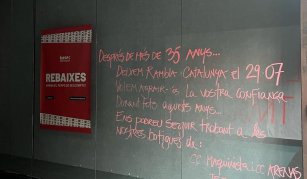 REBAIXES
DESPRÉS DE MÉS DE 35 ANYS...
DEIXEM RAMBLA CATALUNYA EL 29.07
VOLEM AGRAIR-VOS LA VOSTRA CONFIANÇA
DURANT TOTS AQUESTS ANYS...
ENS PODREU SEGUIR TROBANT A LES
NOSTRES BOTIGUES DE:
CC MAQUINISTA, CC ARENAS